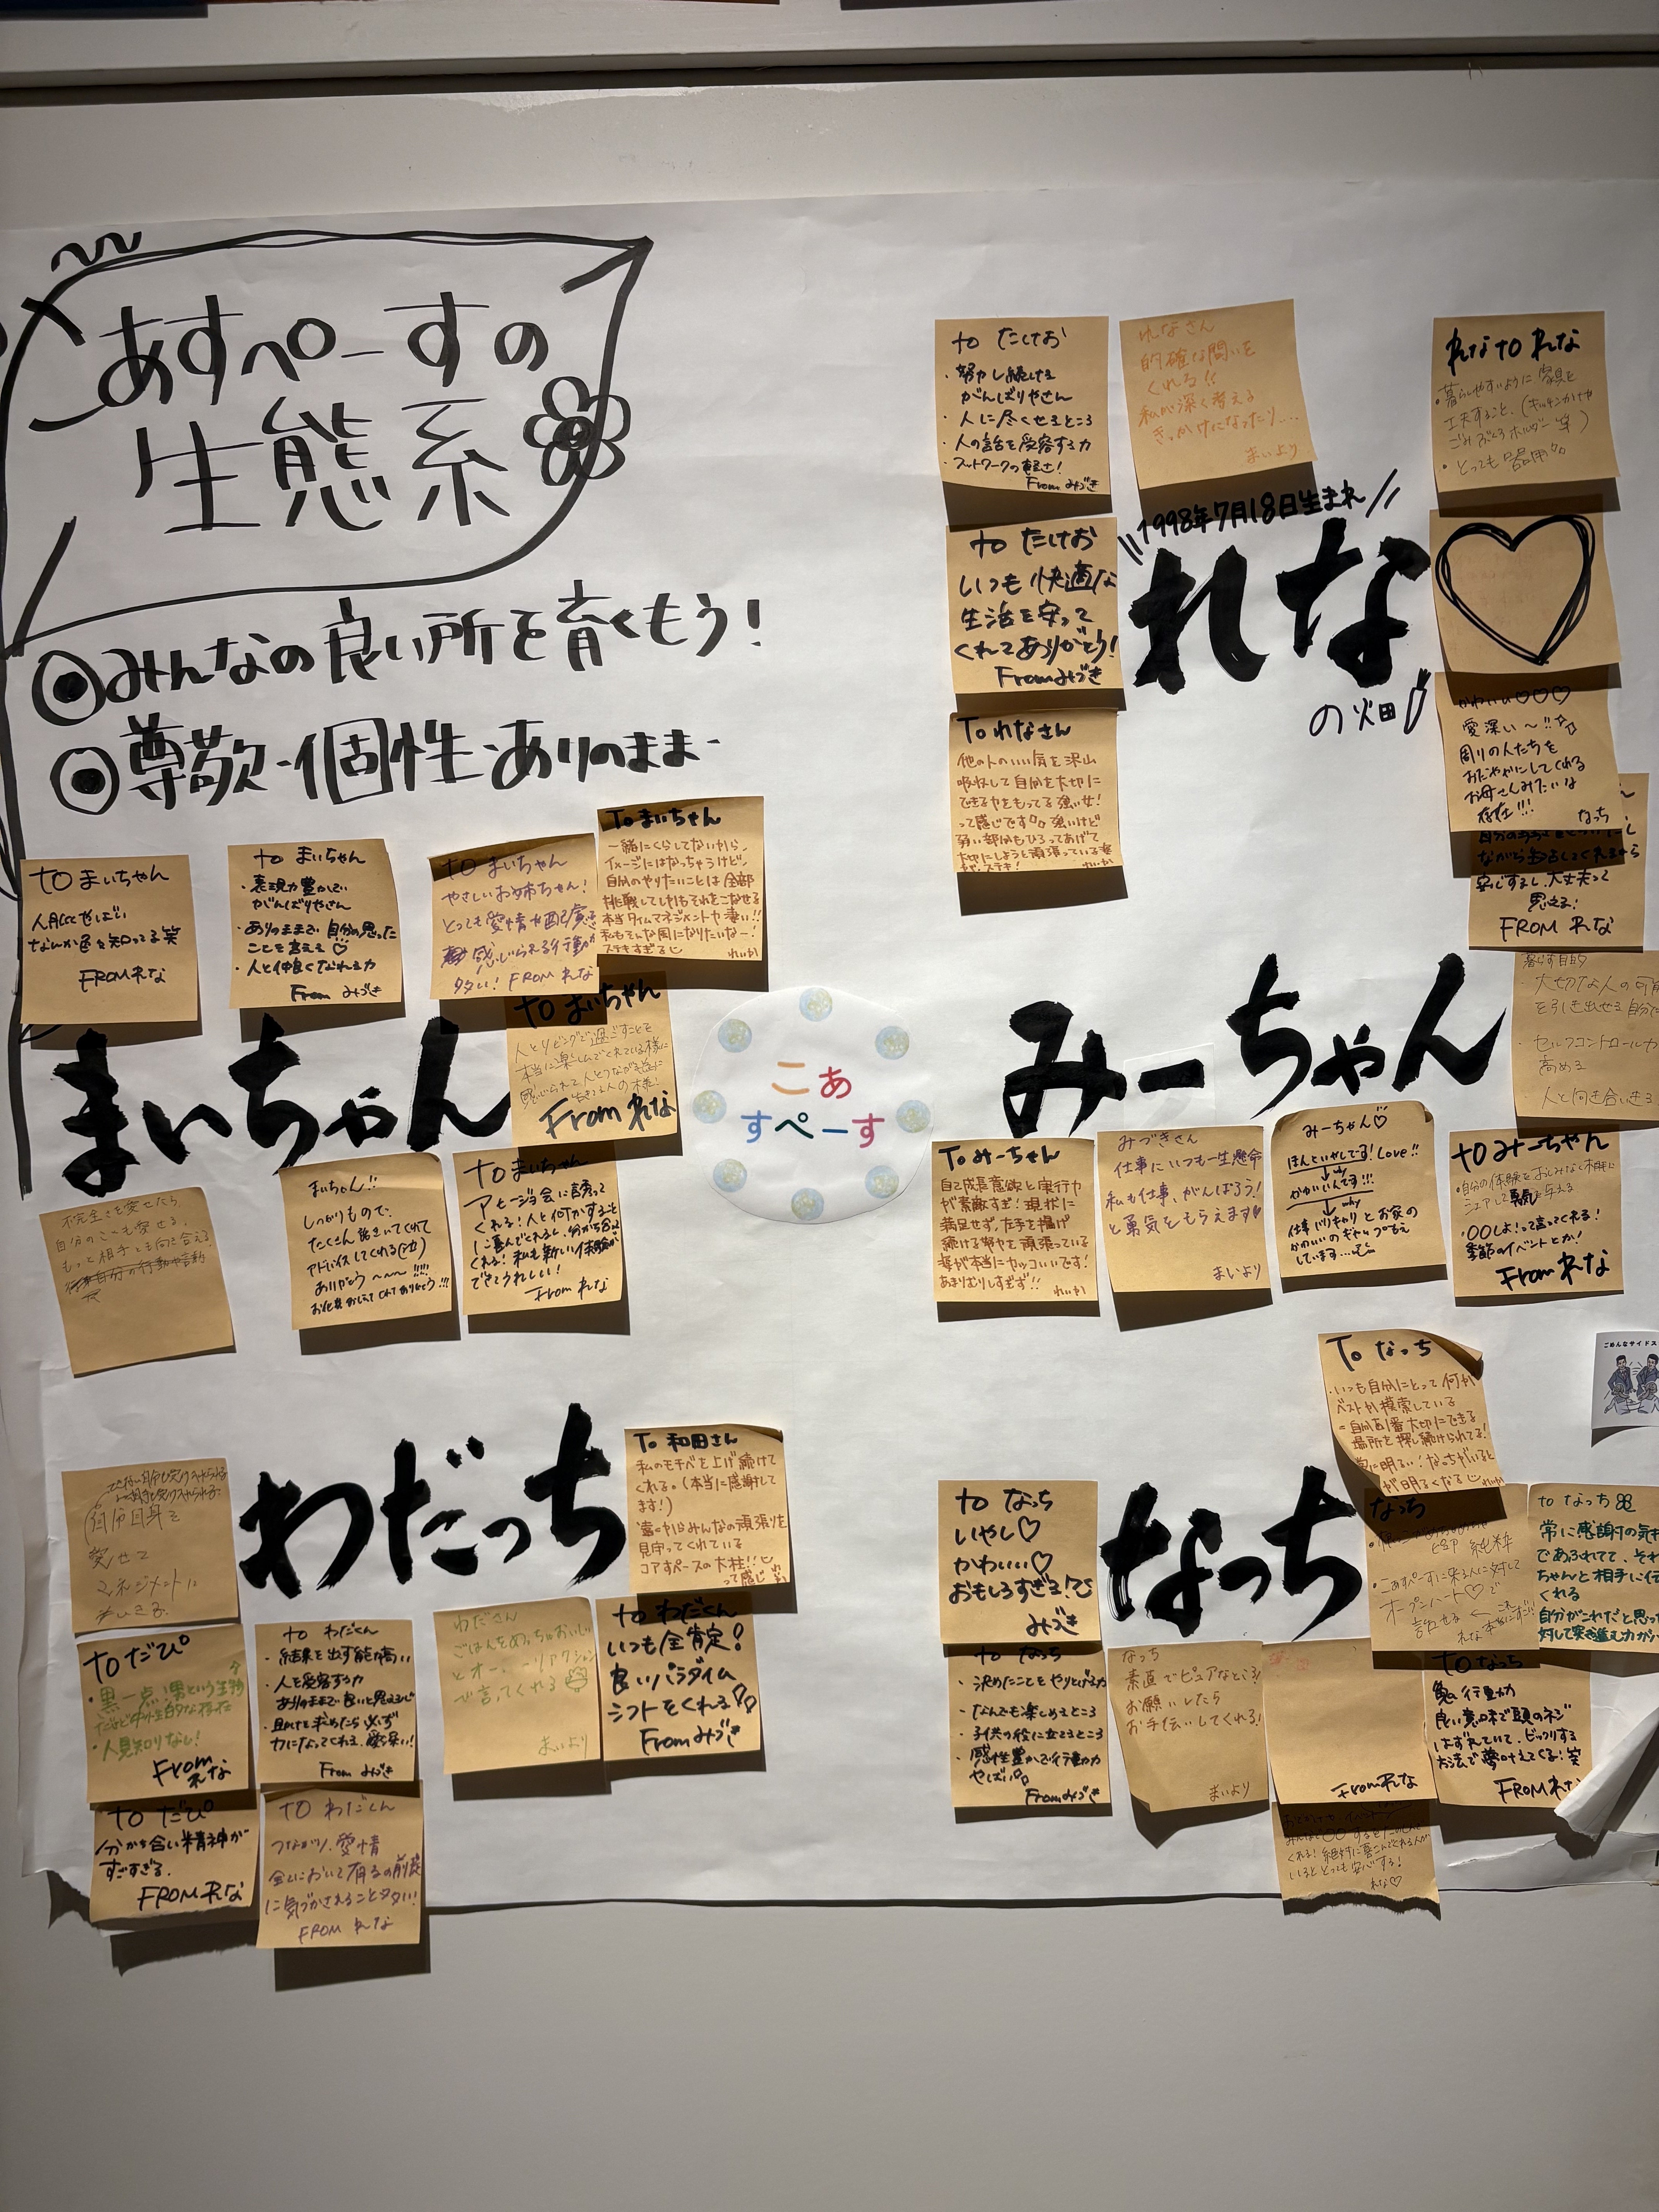 あすぺーすの
生態系
◉みんなの良い所を育くもう!
◉尊敬-個性-ありのまま-
to たけお
・努力し続ける
がんばりやさん
・人に尽くせるところ
・人の話を受容する力
・フットワークの軽さ!
From みづき
れなさん
的確な問いを
くれる!!
私が深く考える
きっかけになったり...
まいより
れな to れな
・暮らしやすいように家具を
工夫すること、(キッチンかさや
ごみぶくろホルダー等)
・とっても器用
to たけお
いつも快適な
生活を守って
くれてありがとう!
From みづき
1998年7月18日生まれ
れな
の畑
To れなさん
他の人のいい気を沢山
吸収して自分を大切に
できる力をもってる強い女!
って感じです 強いけど
弱い部分もひろってあげて
大切にしようと頑張っている姿
が、ステキ! れいか
かわいい♡♡♡
愛深い〜!!
周りの人たちを
おだやかにしてくれる
お母さんみたいな
存在!!! なっち
安心するし、大丈夫って
思える!
FROM れな
to まいちゃん
人脈やばい
なんか色々知ってる笑
FROM れな
to まいちゃん
・表現力豊かで
がんばりやさん
・ありのままで自分の思った
ことを言える♡
・人と仲良くなれる力
From みづき
to まいちゃん
やさしいお姉ちゃん!
とっても愛情や配慮を
感じられる行動が
多い! FROM れな
To まいちゃん
一緒にくらしてないから、
イメージにはなっちゃうけど、
自分のやりたいことは全部
挑戦してしかもそれをこなせる
本当タイムマネジメント力凄い!!
私もそんな風になりたいなー!
ステキすぎる れいか
まいちゃん
to まいちゃん
人とリビングで過ごすことを
本当に楽しんでくれている様に
感じられて、人とつながる為に
生きてる人の様!
From れな
こあ
すぺーす
みーちゃん
暮らす目的
・大切な人の可能
を引き出せる自分で
・セルフコントロール力
高める
・人と向き合いきる
不完全さを愛せたら
自分のことも愛せる。
もっと相手とも向き合える
まいちゃん!!
しっかりもので、
たくさん話きいてくれて
アドバイスしてくれる(泣)
ありがとう〜〜〜!!!!
お仕事おしえてくれてありがとう!!!
to まいちゃん
アヒージョ会に誘って
くれる! 人と何かすること
に喜んでくれるし、分かち合って
くれる! 私も新しい体験が
できてうれしい!
From れな
To みーちゃん
自己成長意欲と実行力
が素敵すぎ! 現状に
満足せず、左手を揚げ
続ける努力を頑張っている
姿が本当にカッコいいです!
あまりむりしすぎず!! れいか
みづきさん
仕事にいつも一生懸命
私も仕事、がんばろう!
と勇気をもらえます
まいより
みーちゃん♡
ほんといやしです! Love!!
かわいいんです!!!
why
仕事バリキャリとお家の
かわいいのギャップもえ
しています...
to みーちゃん
・自分の体験をおしみなく相手に
シェアして勇気を与える
・〇〇しよ!って言ってくれる!
季節のイベントとか!
From れな
ごめんなサイドス
わだっち
自分自身を
愛せて
マネジメントに
To 和田さん
私のモチベを上げ続けて
くれる。(本当に感謝して
ます!)
遠くからみんなの頑張りを
見守ってくれている
コアすペースの大柱!!
って感じ れいか
to だぴ
・黒一点! 男という生物
だけど中性的な存在
・人見知りなし!
From れな
to わだくん
・結果を出す能力高い
・人を受容する力
ありのままで良いと思えるし
・助けを求めたら必ず
力になってくれる、愛深い!
From みづき
わださん
ごはんをめっちゃおいしい
とオーバーリアクション
で言ってくれる
まいより
to わだくん
いつも全肯定!
良いパラダイム
シフトをくれる!
From みづき
to だぴ
分かち合い精神が
すごすぎる。
FROM れな
to わだくん
つながり、愛情
全てにおいて有るの前提
に気づかされること多い!
FROM れな
なっち
To なっち
・いつも自分にとって何が
ベストか模索している
=自分が1番大切にできる
場所を探し続けられてる!
・常に明るい! なっちがいると
が明るくなる れいか
to なっち
いやし♡
かわいい♡
おもしろすぎる!?
みづき
なっち
ピュア 純粋
・こあすぺーすに来る人に対して
オープンハート♡で
話せる ← これ本当にすごい!
れな
to なっち
常に感謝の気持
であふれてて、それ
ちゃんと相手に伝
くれる
自分がこれだと思った
対して突き進む力が
to なっち
・決めたことをやりとげる力
・なんでも楽しめるところ
・子供の役に立てるところ
・感性豊かで行動力
やばい
From みづき
なっち
素直でピュアなところ!
お願いしたら
お手伝いしてくれる!
まいより
From れな
to なっち
鬼行動力
良い意味で頭のネジ
はずれていて、ビックリする
方法で夢叶えてくる! 笑
FROM れな
くれる! 絶対に喜こんでくれる人が
いるととっても安心する!
れな♡